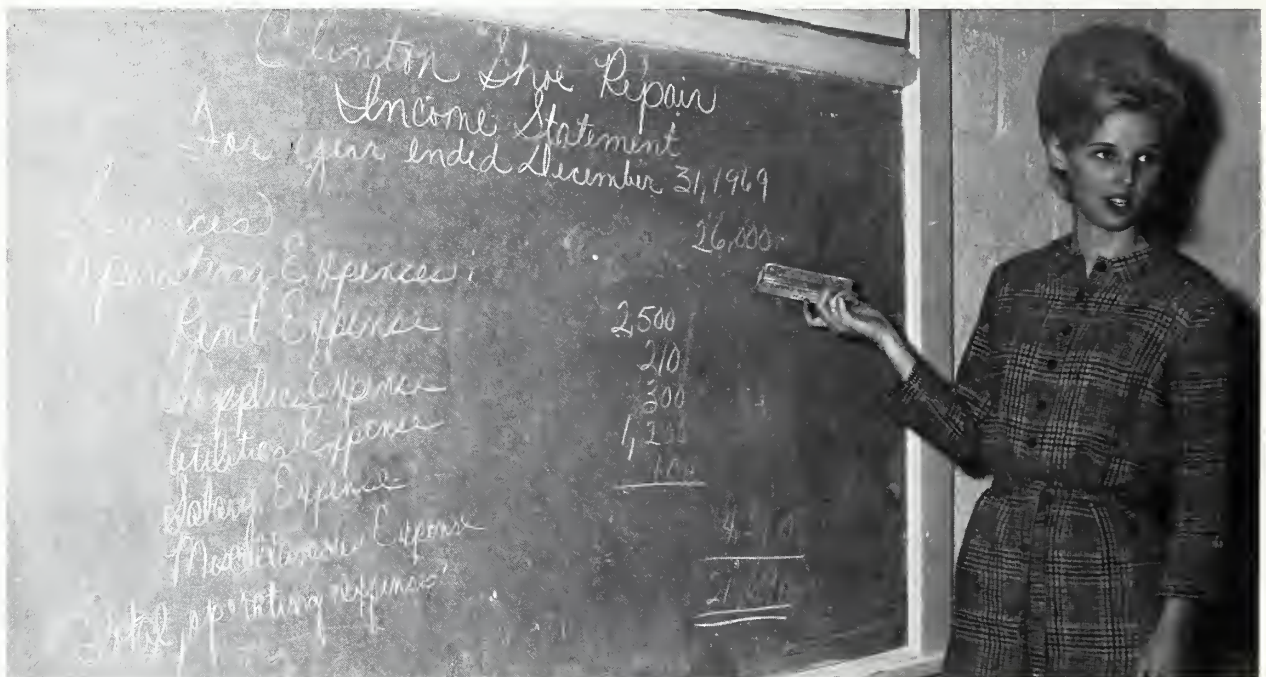 Clinton Shoe Repair
Income Statement
For year ended December 31, 1969
26,000
Operating Expences:
Rent Expense 2500
Supplies Expense 210
Utilities Expense 300
Salary Expense
Miscellaneous Expense
Total operating expenses